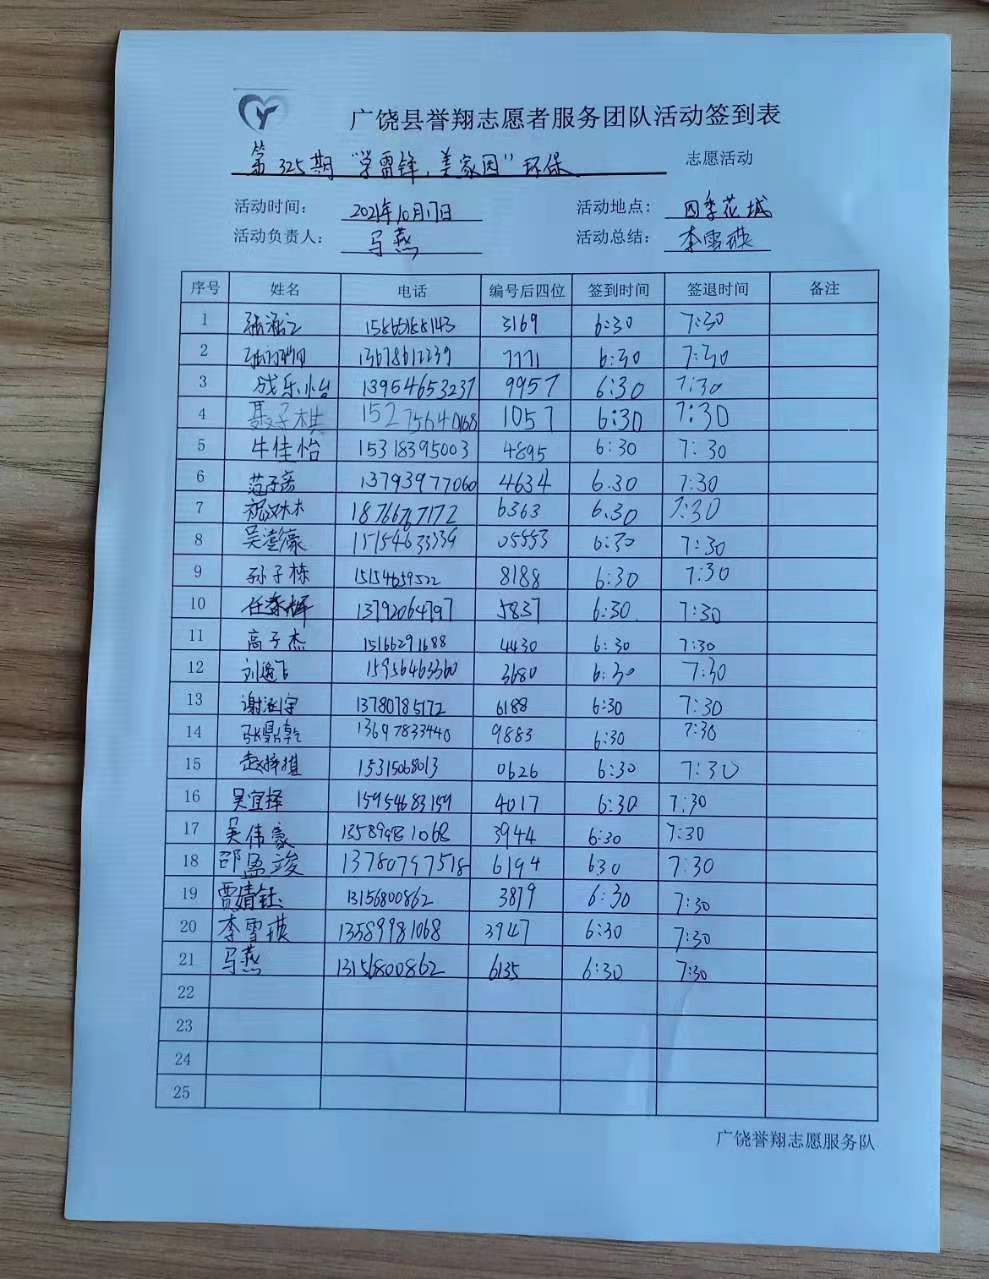 广饶县誉翔志愿者服务团队活动签到表
第325期“学雷锋,美家园”环保 志愿活动
活动时间: 2021年10月17日 活动地点: 四季花城
活动负责人: 马燕 活动总结: 李雪琪
序号 姓名 电话 编号后四位 签到时间 签退时间 备注
1 3169 6:30 7:30
2 13678612239 7771 6:30 7:30
3 成乐怡 13954653237 9957 6:30 7:30
4 聂子棋 15275640168 1057 6:30 7:30
5 牛佳怡 15318395003 4895 6:30 7:30
6 13793977060 4634 6.30 7:30
7 祝汉木 18766767172 6363 6.30 7:30
8 吴滢豪 15154633339 05553 6:30 7:30
9 孙子栋 15154659522 8188 6:30 7:30
10 任泰辉 13792064797 5837 6:30 7:30
11 高子杰 15166291688 4430 6:30 7:30
12 刘逸飞 15956463360 3680 6:30 7:30
13 13780785172 6188 6:30 7:30
14 张鼎乾 13697833440 9883 6:30 7:30
15 赵梓祺 15315068013 0626 6:30 7:30
16 吴宜择 15954683159 4017 6:30 7:30
17 吴伟豪 13589981068 3944 6:30 7:30
18 邵孟竣 13780797518 6194 630 7:30
19 贾婧钰 13156800862 3879 6:30 7:30
20 李雪琪 13589981068 3947 6:30 7:30
21 马燕 13156800862 6135 6:30 7:30
22
23
24
25
广饶誉翔志愿服务队